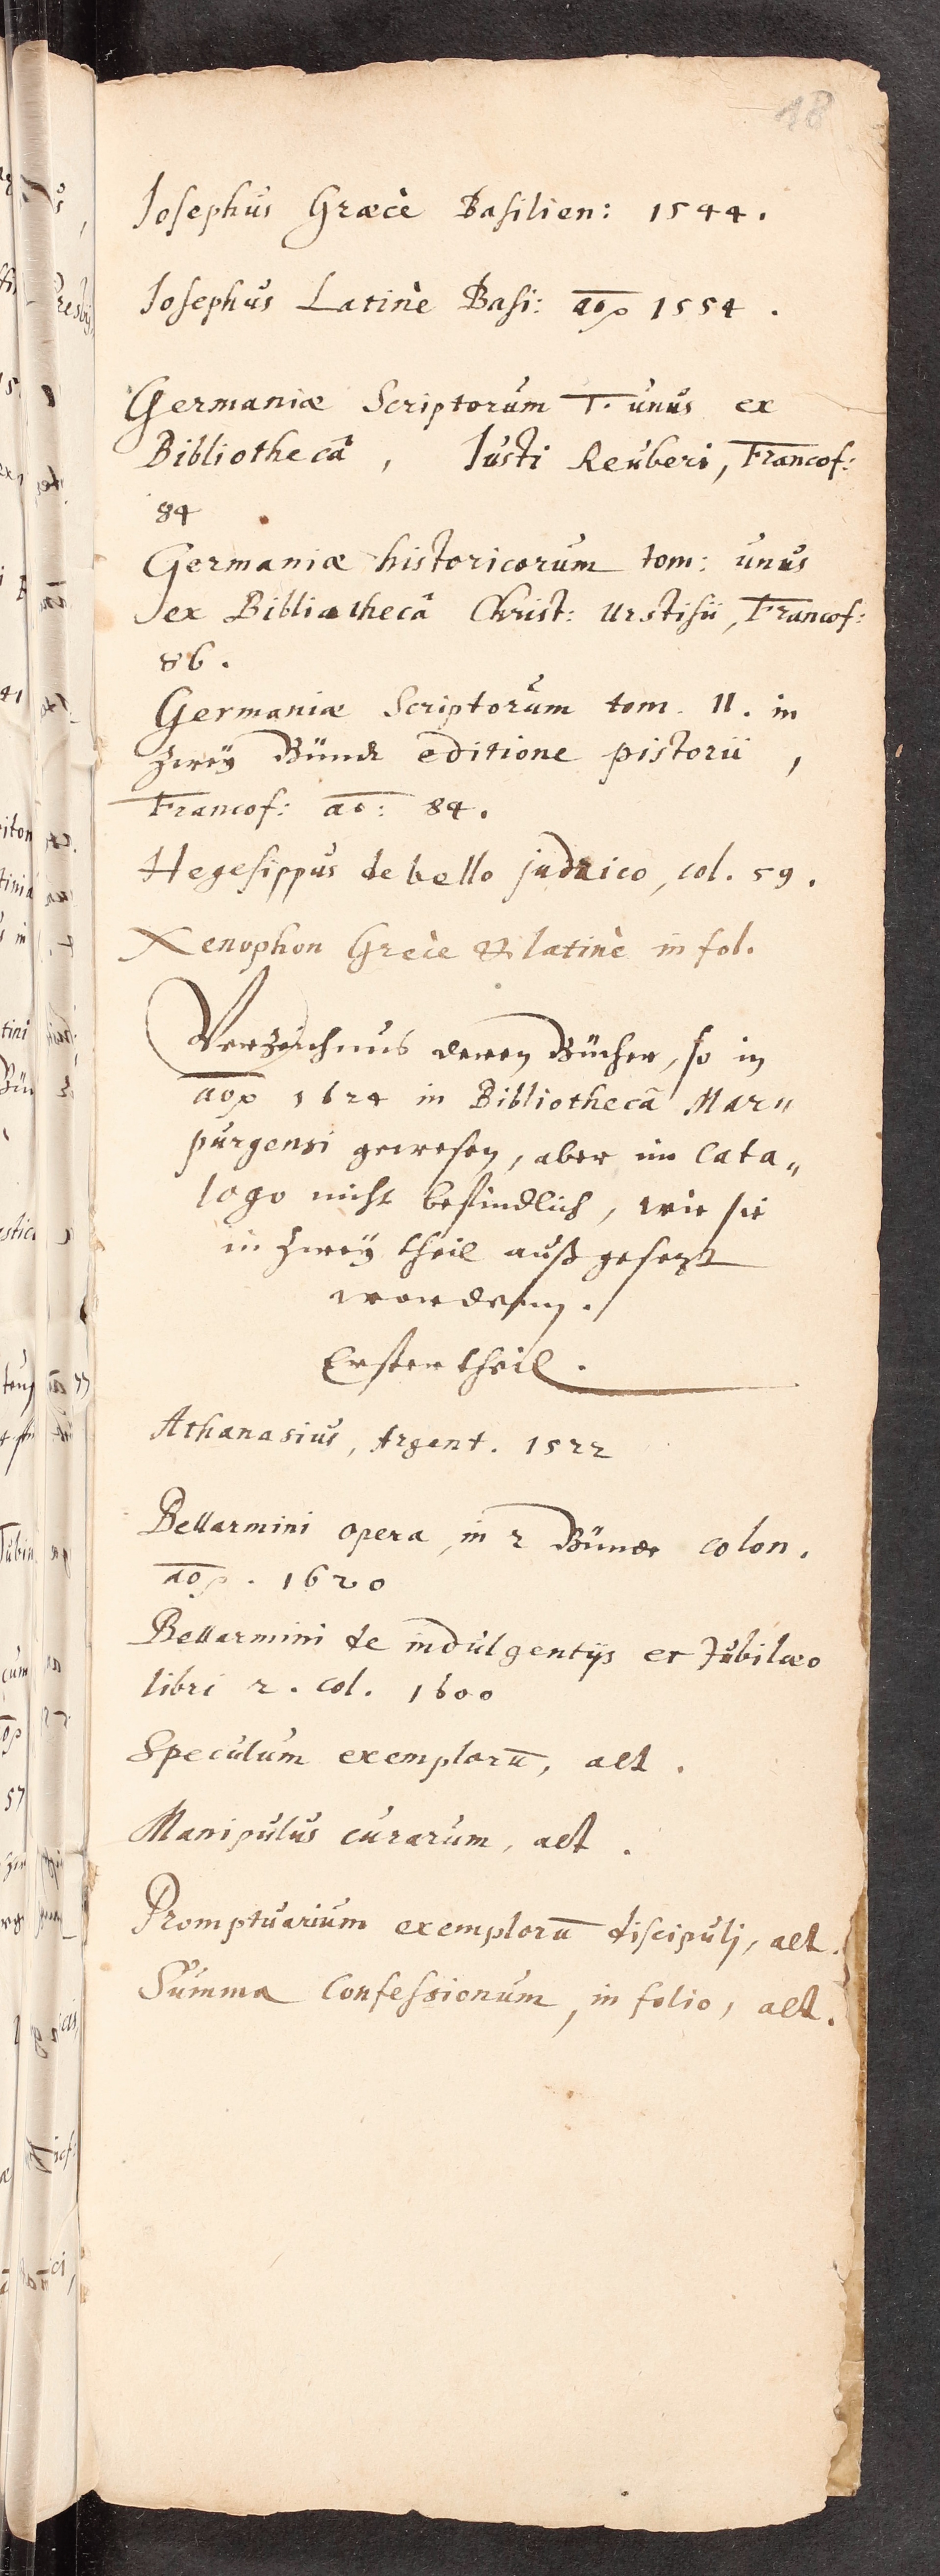 18
Josephus Græcè Basilien: 1544.
Josephus Latinè Basi: ao 1554.
Germaniæ Scriptorum T. unus ex
Bibliothecâ, Justi Reuberi, Francof:
84
Germaniæ historicorum tom: unus
ex Bibliothecâ Christ: Urstisii, Francof:
86.
Germaniæ Scriptorum tom. II. in
zweÿ Bünde editione pistorii,
Francof: ao: 84.
Hegesippus de bello judaico, col. 59.
Xenophon Grecè & latinè in fol.
Verzeichnus deren Bücher, so in
ao 1624 in Bibliothecâ Mar„
purgensi gewesen, aber im Cata„
logo nicht befindlich, wie sie
in zweÿ theil außgesezt
worden.
Erster theil.
Athanasius, Argent. 1522
Bellarmini opera, in 2 Bünde colon.
ao. 1620
Bellarmini de indulgentijs et Jubilæo
libri 2. col. 1600
Speculum exemplorū, alt.
Manipulus curarum, alt.
Promptuarium exemplorū discipulj, alt.
Summa Confessionum, in folio, alt.